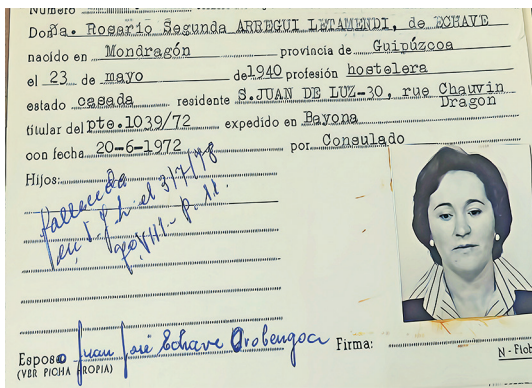 Número
Doña. Rosario Segunda ARREGUI LETAMENDI, de ECHAVE
nacido en Mondragón provincia de Guipúzcoa
el 23 de mayo de 1940 profesión hostelera
estado casada residente S.JUAN DE LUZ-30, rue Chauvin
Dragon
titular del pte.1039/72 expedido en Bayona
con fecha 20-6-1972 por Consulado
Hijos:
fallecida
en el 3/7/78
P. 11.
Esposo Juan José Echave Orobengoa Firma:
(VER FICHA PROPIA)